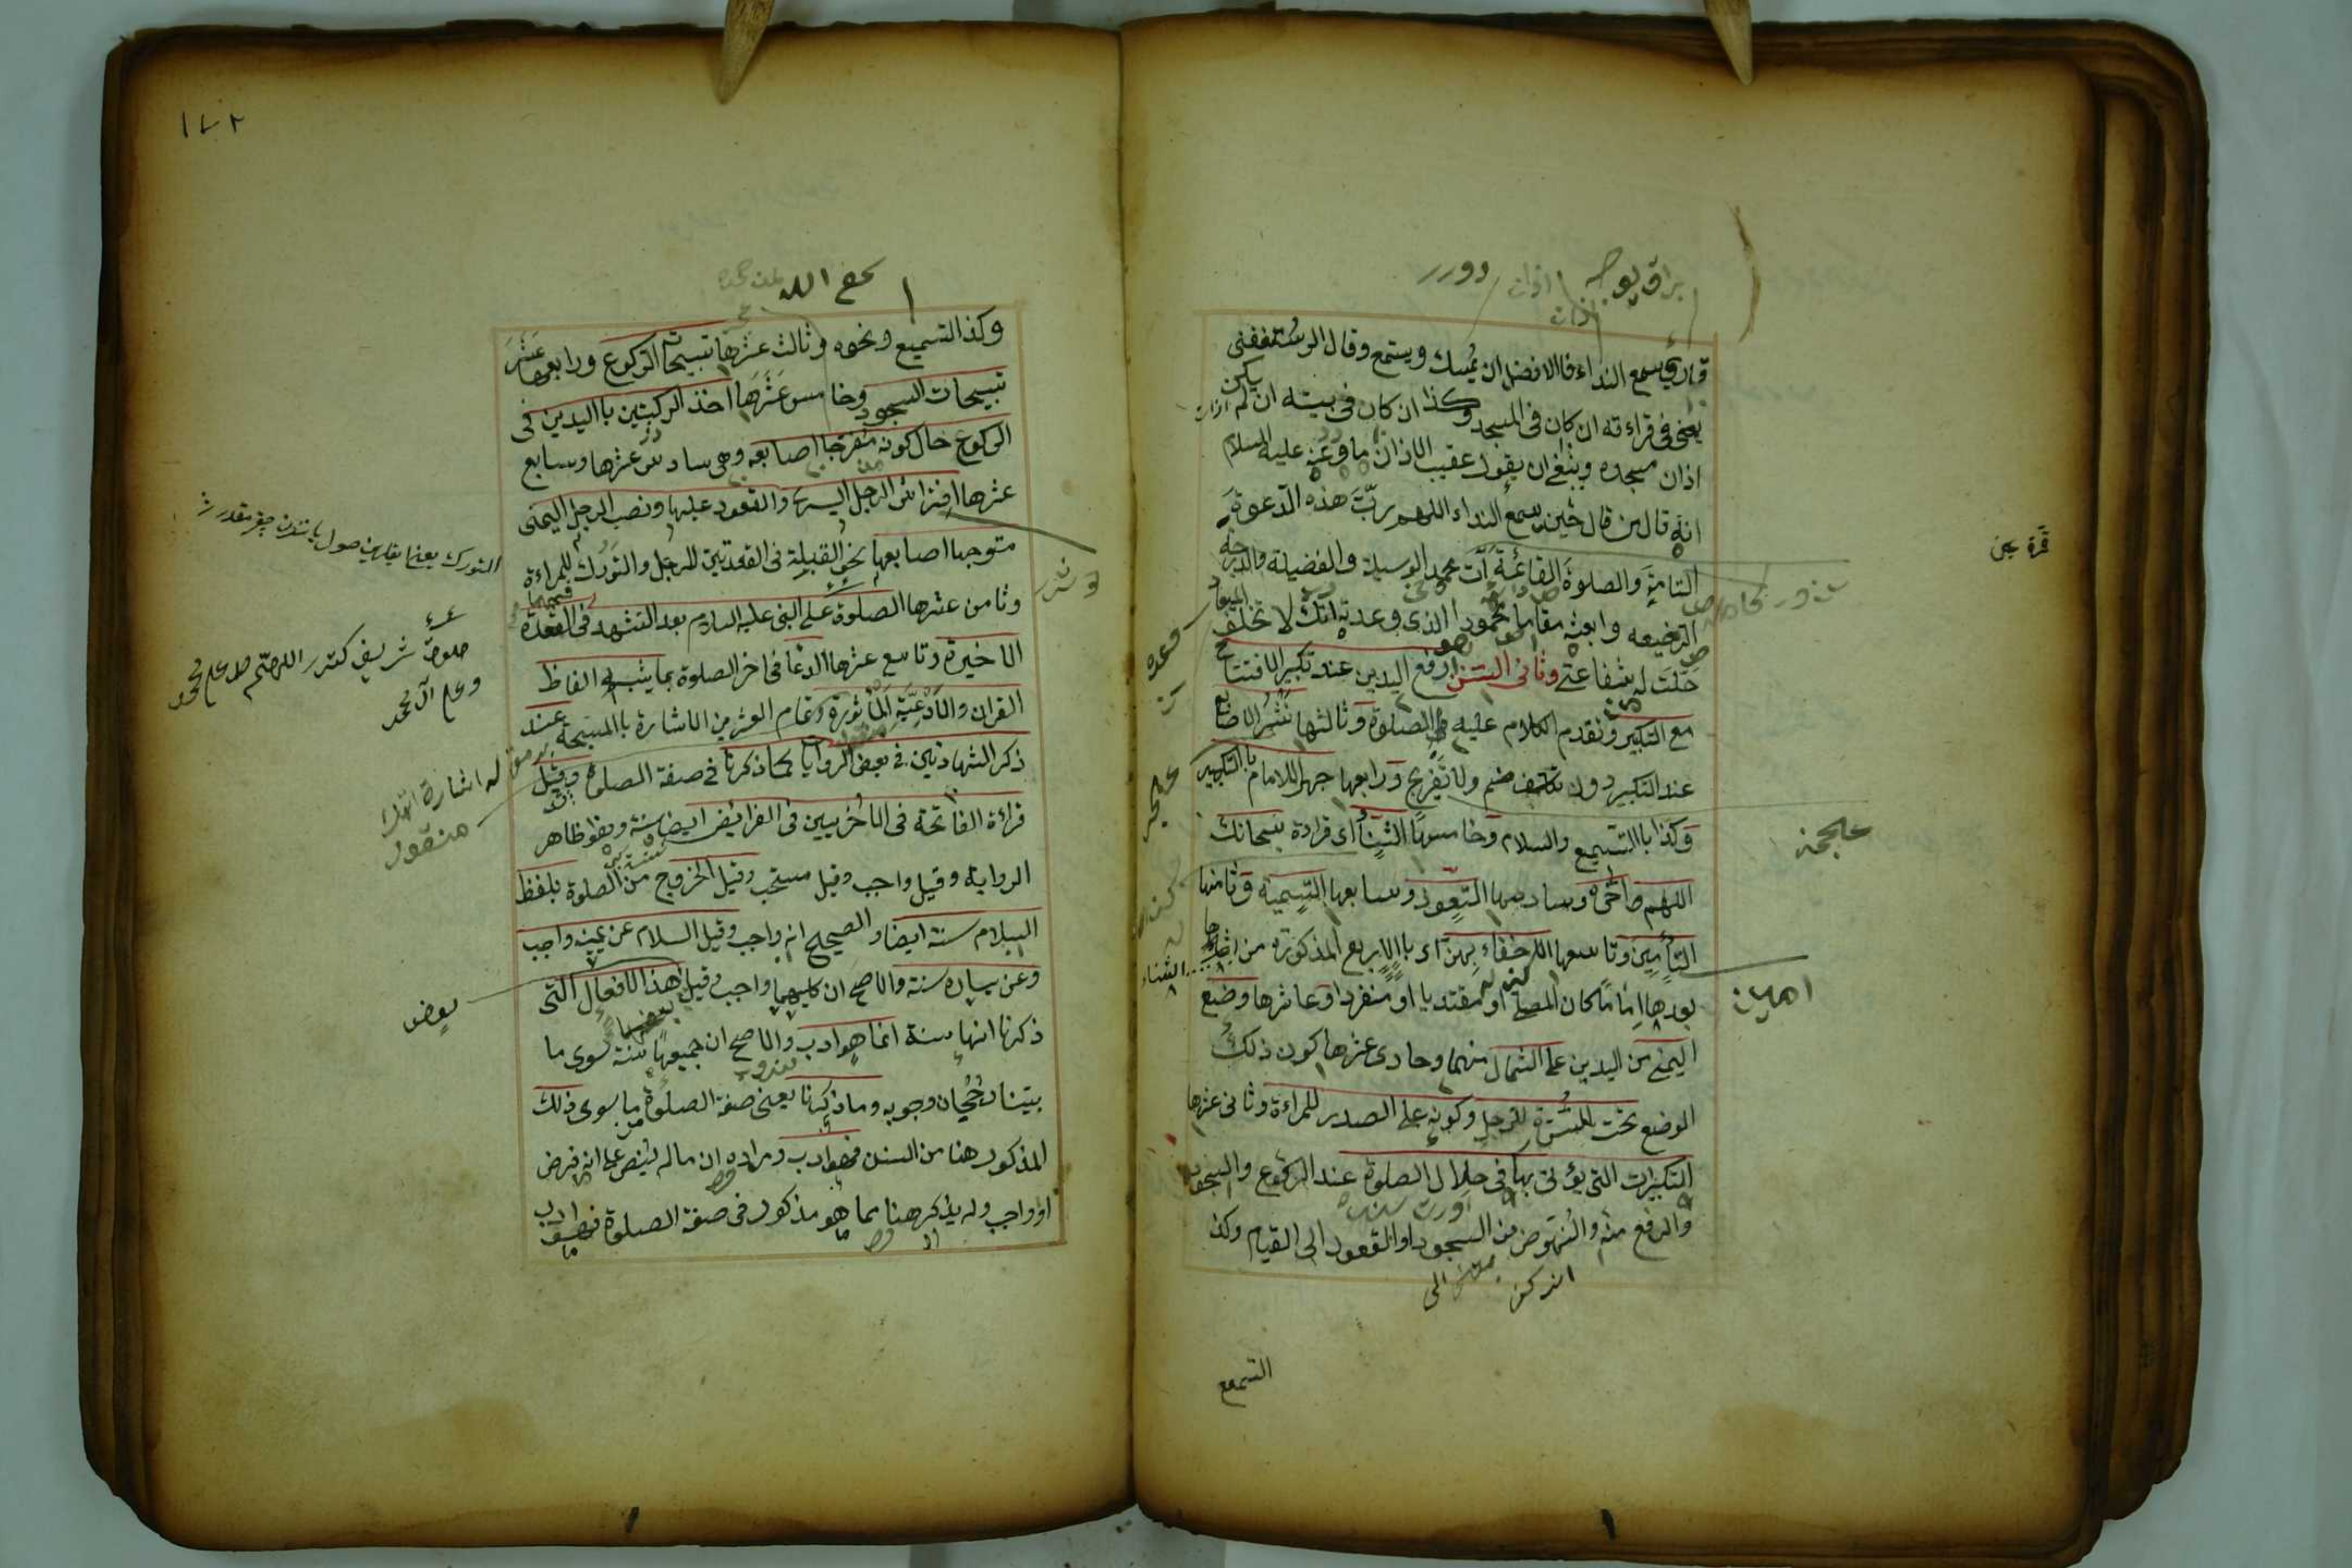 قارئ يسمع النداء فالافضل ان يمسك ويستمع وقال الرستغفنى
يعنى فى قراءته ان كان فى المسجد وكذا ان كان فى بيته ان لم يكن
اذان مسجده وينبغى ان يقول عقيب الاذان ما روى عنه عليه السلام
انه قال من قال حين يسمع النداء اللهم ربّ هذه الدعوة
التامة والصلوة القائمة آت محمد الوسيلة والفضيلة والدرجة
الرفيعه وابعثه مقاما محمودا الذى وعدته انك لا تخلف الميعاد
حلّت له شفاعتى وثانى السنن رفع اليدين عند تكبير الافتتاح
مع التكبير وتقدم الكلام عليه فى الصلوة وثالثها نشر الاصابع
عند التكبير دون تكلف ضم ولا تفريج ورابعها جهر الامام باالتكبير
وكذا باالتسميع والسلام وخامسها الثناء اى قراءة سبحانك
اللهم وسادسها التعوّذ وسابعها التسمية وثامنها
التأمين وتاسعها الاخفاء بهن اى باالاربع المذكورة من
بعدها اماما كان المصلى او مقتديا او منفردا وعاشرها وضع
اليمنى من اليدين على الشمال منهما وحادى عشرها كون ذلك
الوضع تحت السرّة للرجل وكونه على الصدر للمراءة وثانى عشرها
التكبيرات التى يؤتى بها فى خلال الصلوة عند الركوع والسجود
والرفع منه والنهوض من السجود او القعود الى القيام وكذا
التسميع
امين
الثناء
١٧٢
وكذا التسميع ونحوه وثالث عشرها تسبيحات الركوع ورابع عشر
تسبيحات السجود وخامس عشرها اخذ الركبتين باليدين فى
الركوع حال كونه مفرجا اصابعه وهى سادس عشرها وسابع
عشرها افتراش الرجل اليسرى والقعود عليها ونصب الرجل اليمنى
متوجها اصابعها نحو القبلة فى القعدتين للرجل والتورك للمراءة
وثامن عشرها الصلوة على النبى عليه السلام بعد التشهد فى القعدة
الاخيرة وتاسع عشرها الدعا فى اخر الصلوة بما يشبه الفاظ
القران والادعية المأثورة وتمام العشرين الاشارة باالمسبحة عند
ذكر الشهادتين فى بعض الروايا كما ذكرنا فى صفة الصلوة وقيل
قراءة الفاتحة فى الاخريين فى الفرائض ايضا سنة وهو ظاهر
الرواية وقيل واجب وقيل مستحب وقيل الخروج من الصلوة بلفظ
السلام سنة ايضا والصحيح انه واجب وقيل السلام عن يمينه واجب
وعن يساره سنة والاصح ان كليهما واجب وقيل هذا الافعال التى
ذكرنا انها سنة انما هو ادب والاصح ان جميعها سنة سوى ما
بيّنا رجحان وجوبه وما ذكرنا يعنى صفة الصلوة ما سوى ذلك
المذكور هنا من السنن فهو ادب ومراده ان ما لم ينص على انه فرض
او واجب ولم يذكر هنا مما هو مذكور فى صفة الصلوة فهو ادب
اللهم صل على محمد
وعلى آل محمد
بعض